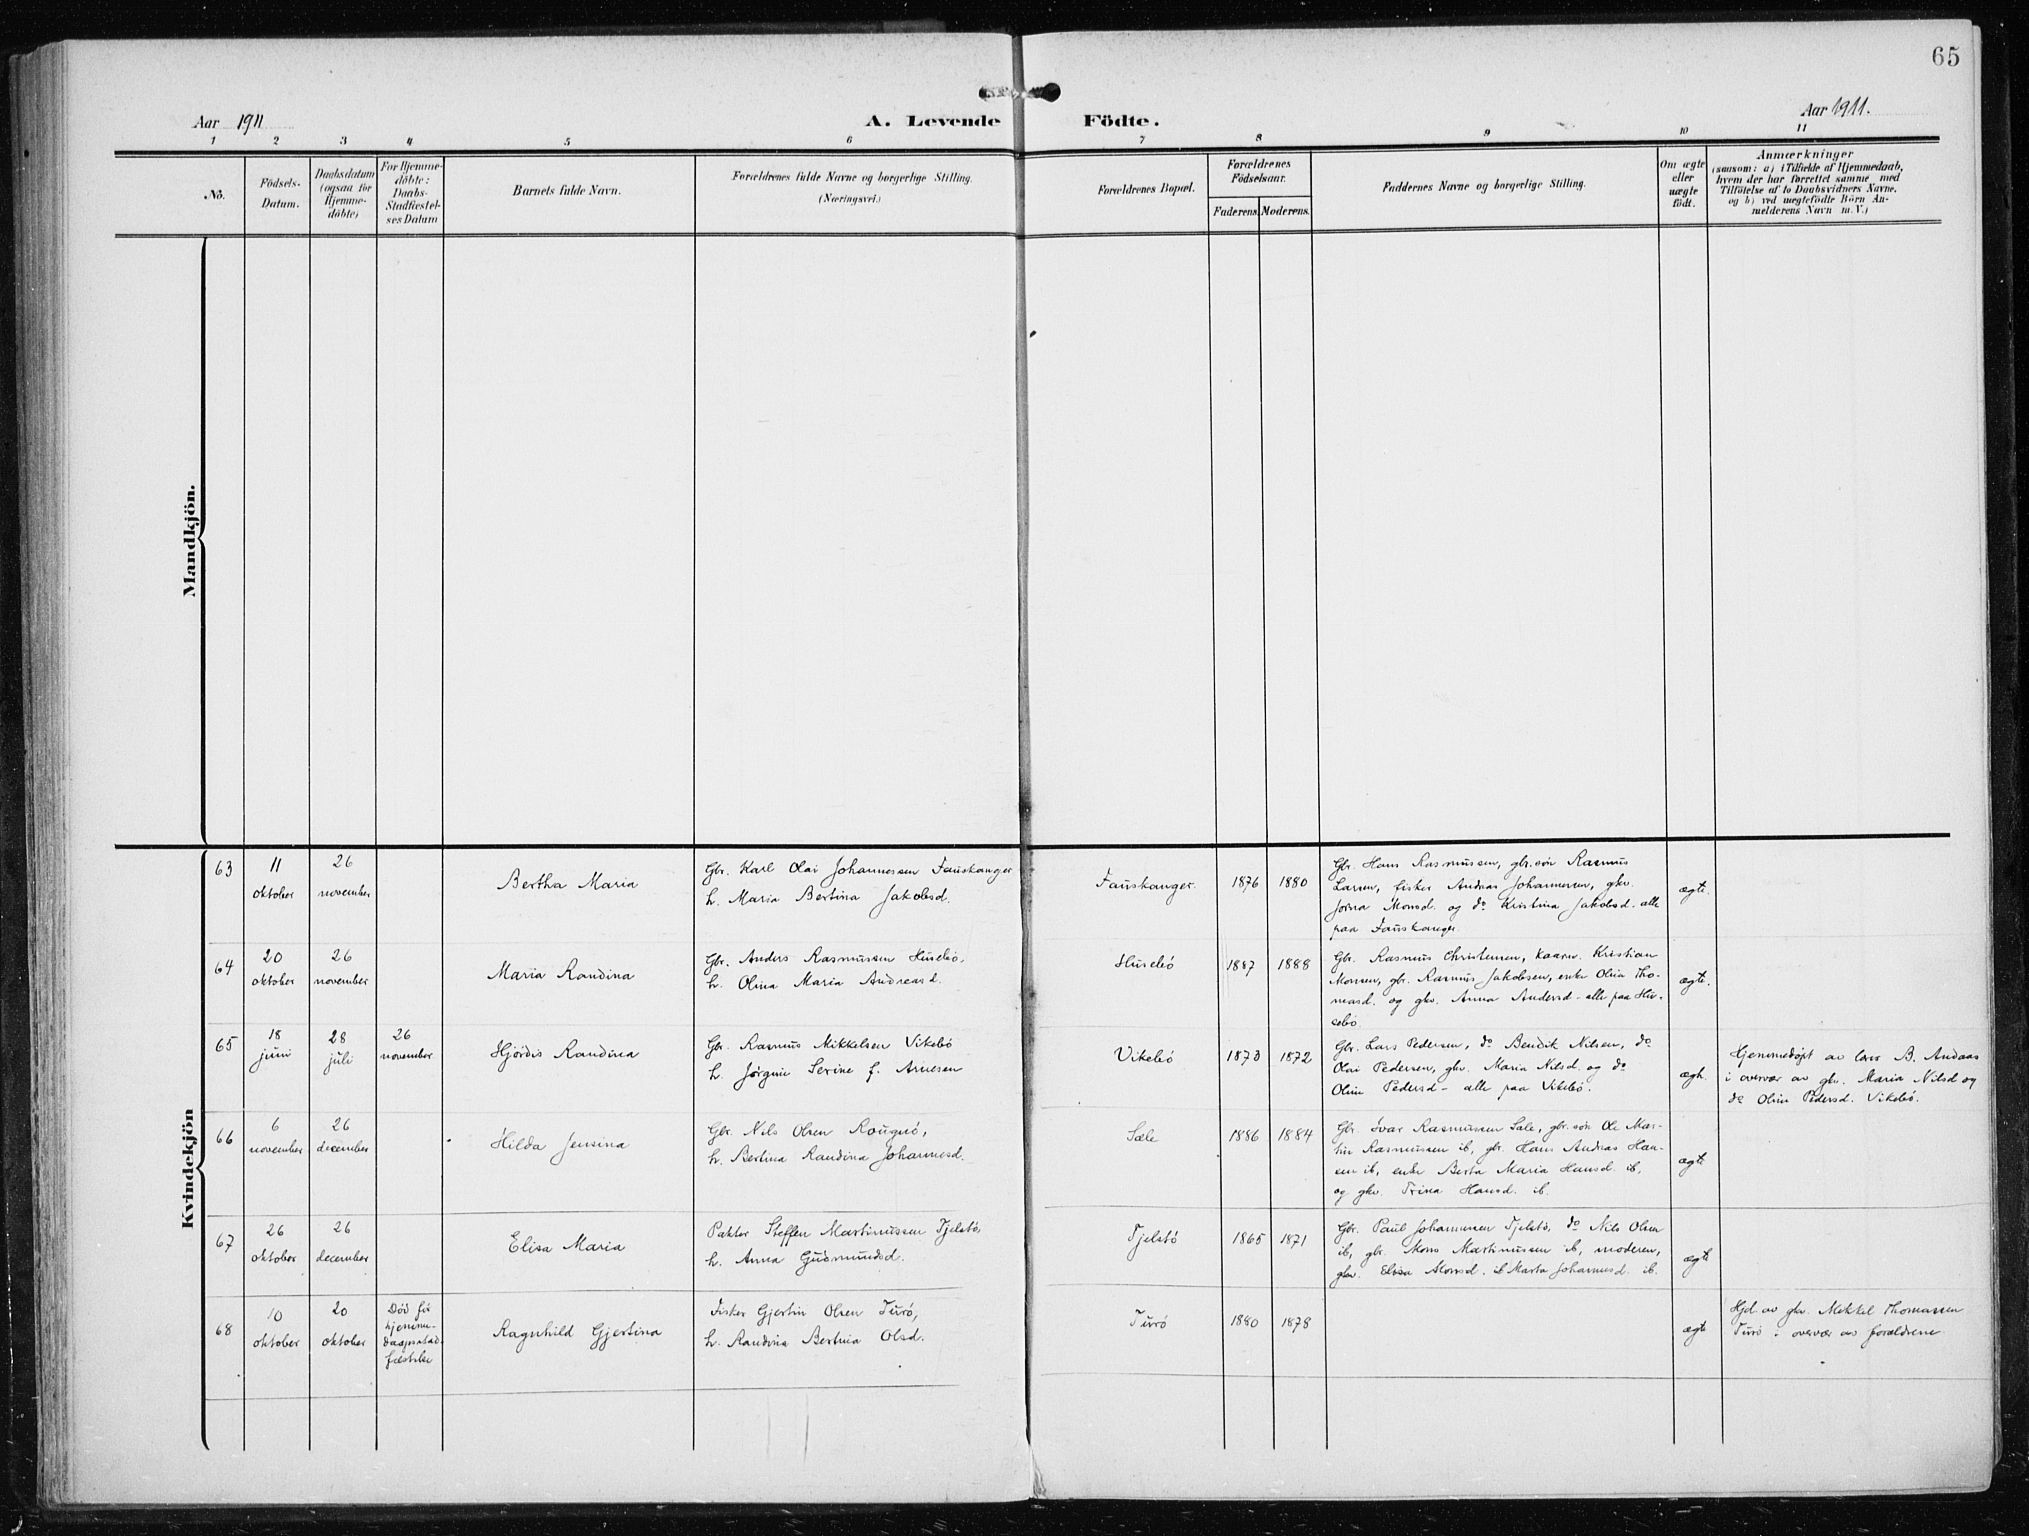 65
Aar 1911
A. Levende Födte.
Aar 1911.
1 2 3 4 5 6 7 8 9 10 11
No.
Födsels-
Datum.
Daabsdatum
(ogsaa for
Hjemme-
döbte)
For Hjemme-
döbte:
Daabs-
Stadfæstel-
ses Datum
Barnets fulde Navn.
Forældrenes fulde Navne og borgerlige Stilling.
(Næringsvei.)
Forældrenes Bopæl.
Forældrenes
Födselsaar.
Faderens. Moderens.
Faddernes Navne og borgerlige Stilling.
Om ægte
eller
uægte
födt.
Anmærkninger
(saasom: a) i Tilfælde af Hjemmedaab,
hvem der har forrettet samme med
Tilföielse af to Daabsvidners Navne.
og b) ved uægtefödte Börn An-
melderens Navn m. V.)
Mandkjön.
Kvindekjön
63
11
oktober
26
november
Bertha Maria
Gbr. Karl Olai Johannessen Fauskanger
h. Maria Bertina Jakobsd.
Fauskanger.
1876 1880
Gbr. Hans Rasmussen, gbr.søn Rasmus
Larsen, fisker Andreas Johannessen, gkv.
Monsd. og do Kristina Jakobsd. alle
paa Fauskanger.
ægte.
64
20
oktober
26
november
Maria Randina
Gbr. Anders Rasmussen Husebø,
h. Olina Maria Andreasd.
Husebø
1887 1888
Gbr. Rasmus Christensen, kaarm. Kristian
Monsen, gbr. Rasmus Jakobsen, enke Olina Tho-
masd. og gkv. Anna Andersd - alle paa Hu-
sebø.
ægte.
65
18
juni
28
juli
26
november
Hjördis Randina
Gbr. Rasmus Mikkelsen Vikebø
h. Jørgine Serine f. Arnesen
Vikebø
1873 1872
Gbr. Lars Pedersen, do Bendik Nilsen, do
Olai Pedersen, gkv. Maria Nilsd. og do
Oline Pedersd - alle paa Vikebø.
ægte.
Hjemmedøpt av lærer B. Andaas
i overvær av gkv. Maria Nilsd og
do Oline Pedersd. Vikebø.
66
6
november
26
december
Hilda Jensina
Gbr. Nils Olsen Rougnø,
h. Bertina Randina Johannesd.
Sæle
1886 1884
Gbr. Ivar Rasmussen Sæle, gbr. søn Ole Mar-
tin Rasmussen ib, gbr. Hans Andreas Han-
sen ib, enke Berta Maria Hansd. ib,
og gkv. Trina Hansd. ib.
ægte
67
26
oktober
26
december
Elisa Maria
Pakter Steffen Martinussen Tjelstø,
h. Anna Gudmundsd.
Tjelstø
1865 1871
Gbr. Paul Johannessen Tjelstø, do Nils Olsen
ib, gbr. Mons Martinussen ib, moderen,
gkv. Elisa Monsd. ib Marta Johannesd. ib.
ægte
68
10
oktober
20
oktober
Død før
hjemme-
daapsstad-
fæstelse
Ragnhild Gjertina
Fisker Gjertin Olsen Turø,
h. Randina Bertina Olsd.
Turø
1880 1878
ægte
Hjd. av gkv. Mikkel Thomassen
Turø i overvær av forældrene